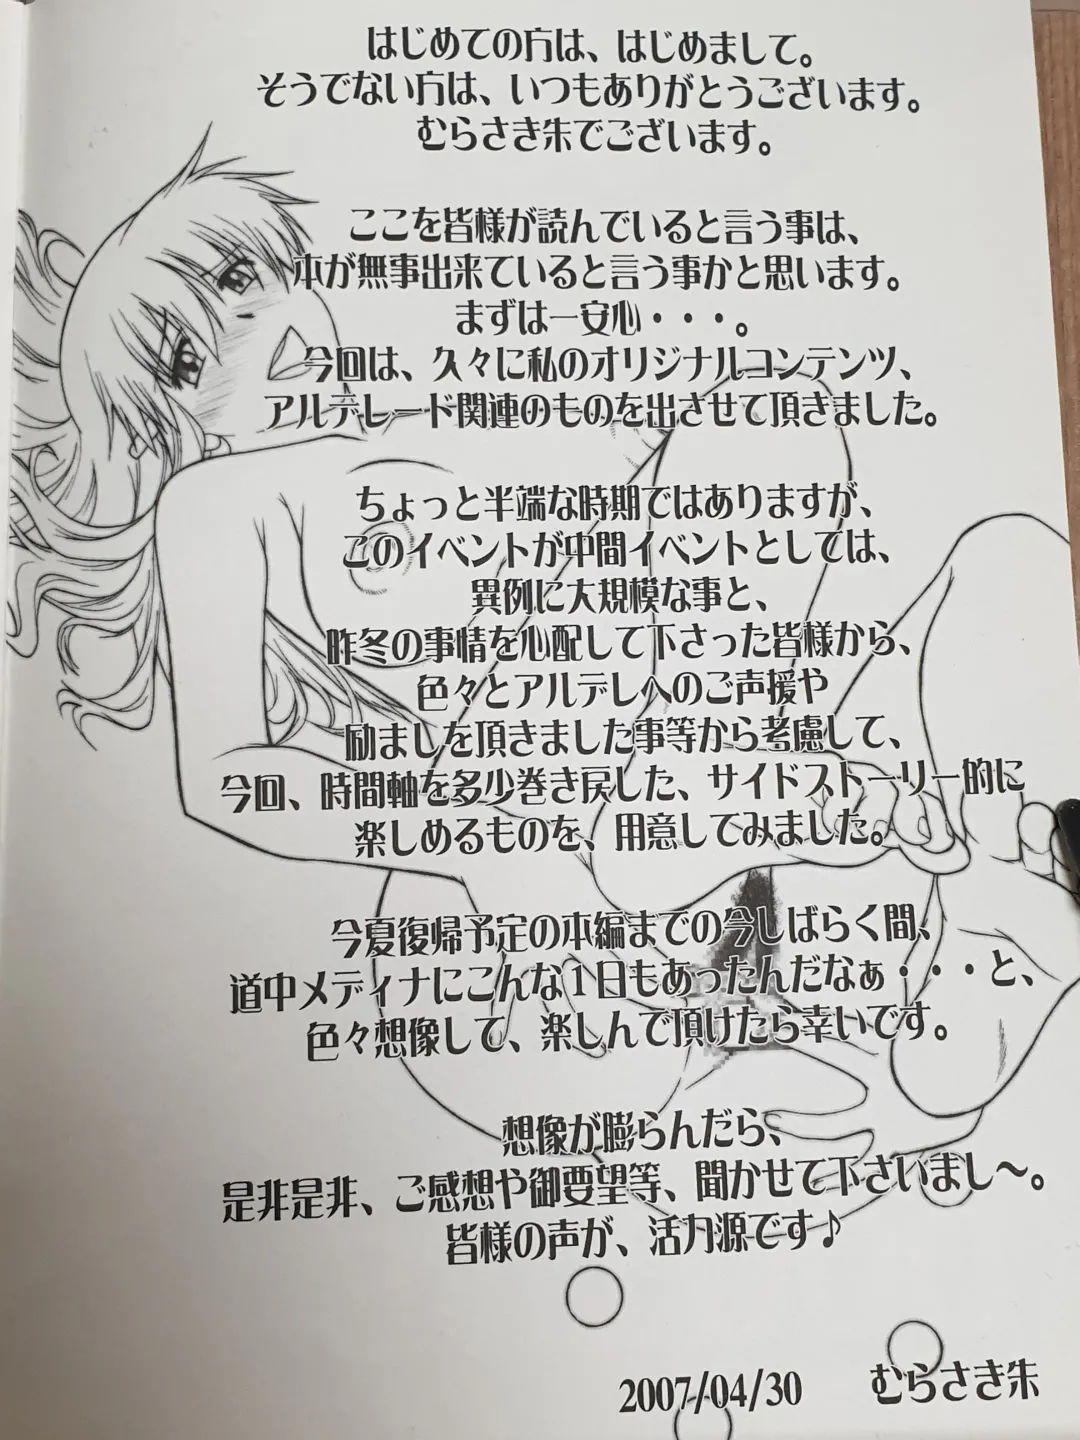 はじめての方は、はじめまして。
そうでない方は、いつもありがとうございます。
むらさき朱でございます。
ここを皆様が読んでいると言う事は、
本が無事出来ていると言う事かと思います。
まずは一安心・・・。
今回は、久々に私のオリジナルコンテンツ、
アルデレード関連のものを出させて頂きました。
ちょっと半端な時期ではありますが、
このイベントが中間イベントとしては、
異例に大規模な事と、
昨冬の事情を心配して下さった皆様から、
色々とアルデレへのご声援や
励ましを頂きました事等から考慮して、
今回、時間軸を多少巻き戻した、サイドストーリー的に
楽しめるものを、用意してみました。
今夏復帰予定の本編までの今しばらく間、
道中メディナにこんな1日もあったんだなぁ・・・と、
色々想像して、楽しんで頂けたら幸いです。
想像が膨らんだら、
是非是非、ご感想や御要望等、聞かせて下さいまし〜。
皆様の声が、活力源です♪
2007/04/30 むらさき朱